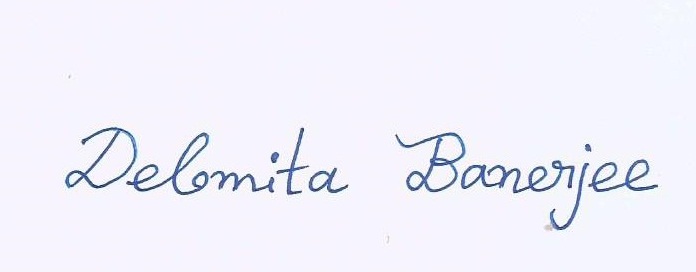 Debmita Banerjee